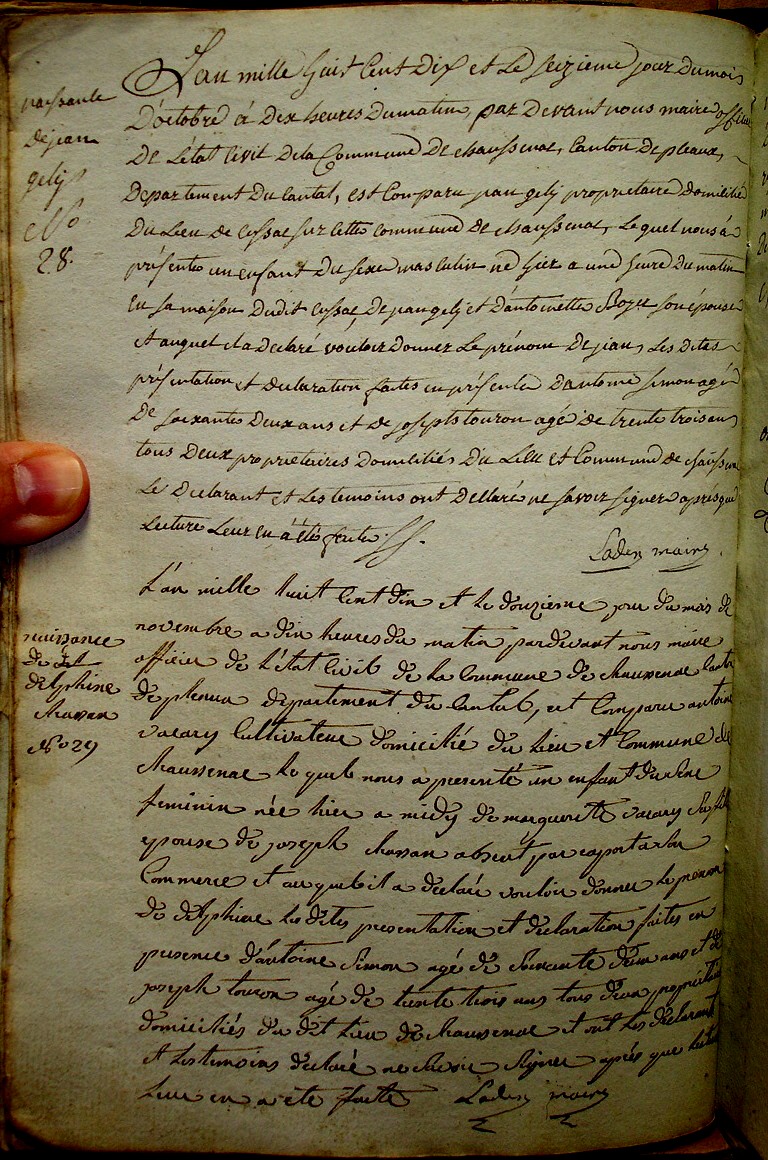 naissance
de jean
gely
No
28.
L'an mille huit cent dix et le seizieme jour du mois
D'octobre à dix heures du matin, par devant nous maire officier
De L'état Civil de la Commune De chaussenac, Canton de pleaux,
Departement Du Cantal, est Comparu jean gely proprietaire Domicilié
Du Lieu de Cussac sur Cette commune de chaussenac, Lequel nous à
présenté un enfant du sexe masculin né hier a une heure du matin
En sa maison Dudit Cussac, De jean gely et D'antoinette son épouse
et auquel il a Declaré vouloir Donner Le prénom De jean, Les Dites
présentation et declaration faites en présence D'antoine simon agé
De soixantes Deux ans et de joseph touron agé de trente trois ans
tous Deux proprietaires Domiciliés Du Lieu et Commune de chaussenac
Le Declarant et Les temoins ont Declaré ne savoir signer après que
Lecture Leur en à été faite.
Laden maire.
naissance
de
delphine
chavan
No 29
L'an mille huit cent dix et le douzieme jour du mois de
novembre a dix heures du matin pardevant nous maire
officier de l'état civil de la Commune de chaussenac canton
de pleaux departement du Cantal, est Comparu antoine
vacary Cultivateur domicilié du lieu et Commune de
chaussenac le quel nous a presenté un enfant du sexe
feminin née hier a midy de marguerite vacary sa fille
epouse de joseph chavan absent par raport a son
Commerce et auquel il a declaré vouloir donner le prenom
de delphine les dites presentation et declaration faites en
presence d'antoine simon agé de soixante deux ans et de
joseph touron agé de trente trois ans tous deux proprietaires
domiciliés du dit lieu de chaussenac et ont les declarant
et les temoins declaré ne savoir signer après que lecture
leur en a été faite Laden maire